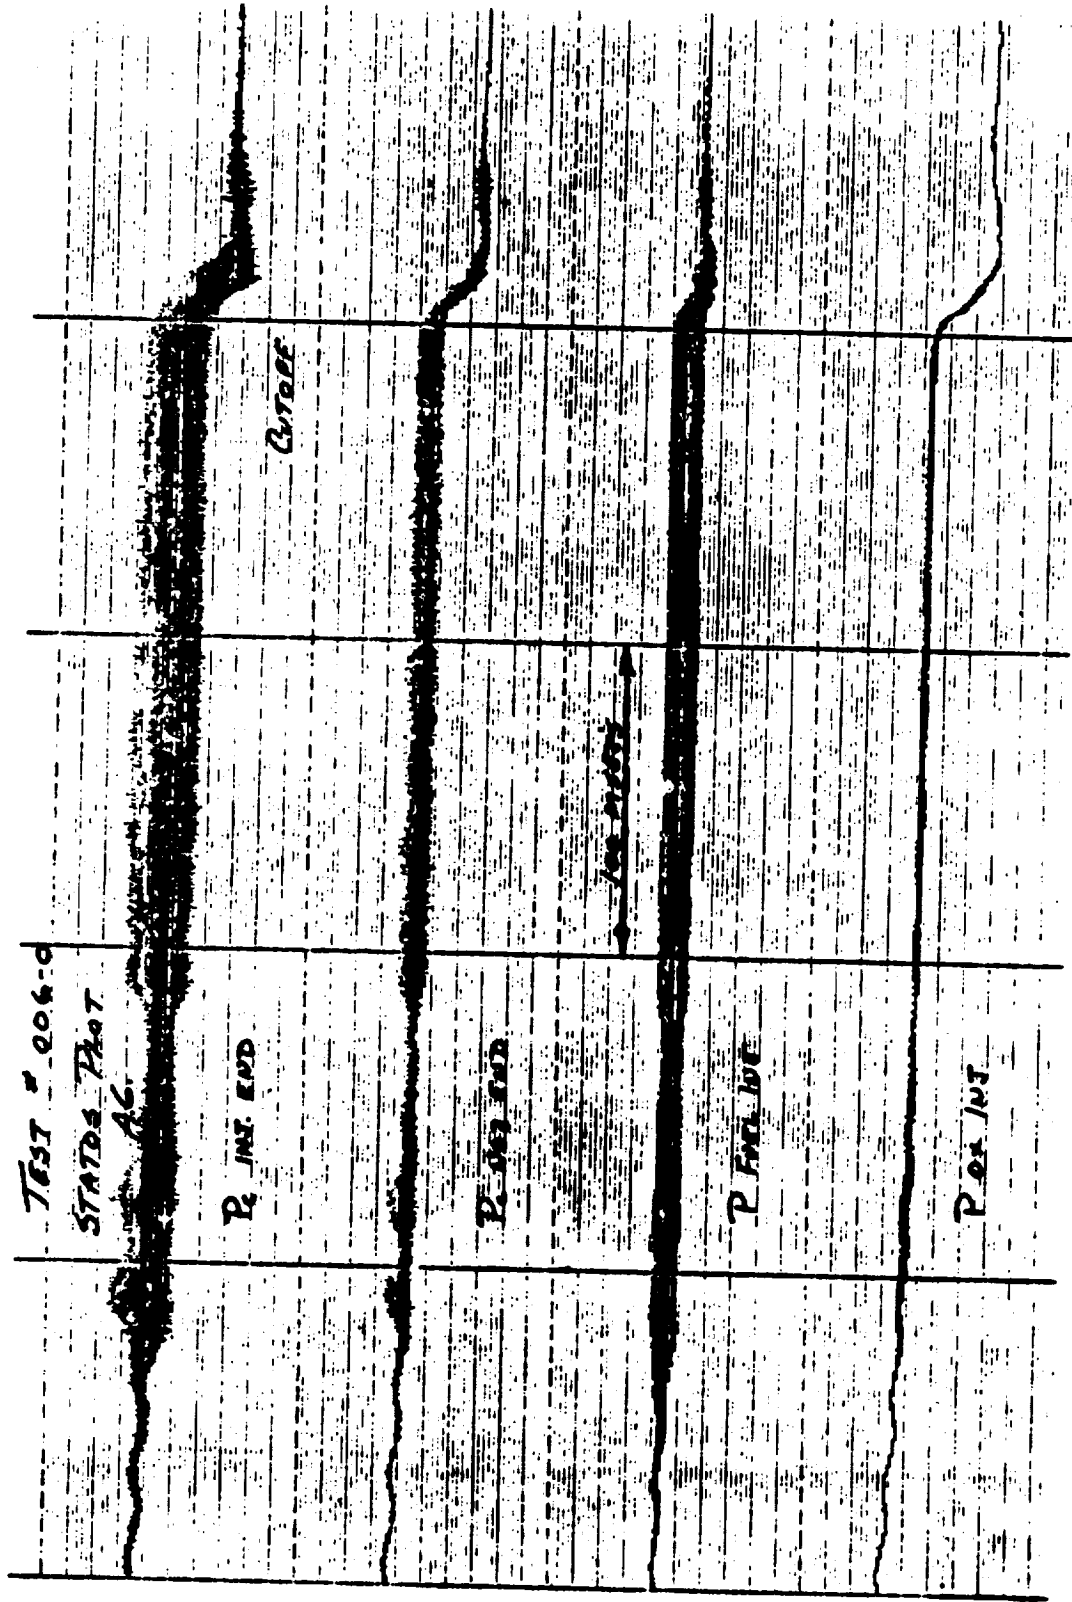 TEST # 006-0
STATOS PLOT
A.C.
Pc INJ. END
CUTOFF
Pc END
100 MSEC
P FUEL INJ
P OX INJ